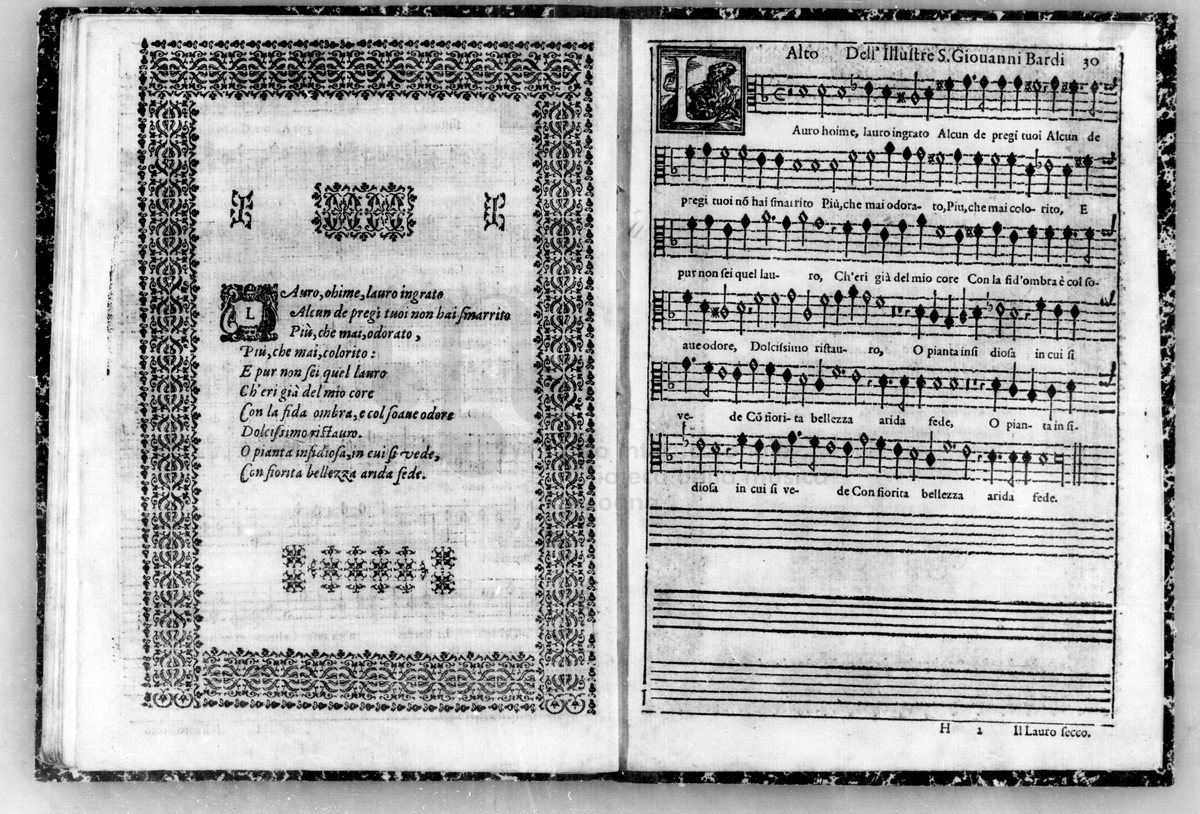 LAuro, ohime, lauro ingrato
Alcun de pregi tuoi non hai ſmarrito
Più, che mai, odorato,
Più, che mai, colorito:
E pur non ſei quel lauro
Ch'eri già del mio core
Con la fida ombra, e col ſoaue odore
Dolciſsimo riſtauro.
O pianta inſidioſa, in cui ſi vede,
Con fiorita bellezza arida fede.
Alto Dell' Illuſtre S. Giouanni Bardi 30
LAuro hoime, lauro ingrato Alcun de pregi tuoi Alcun de
pregi tuoi nõ hai ſmarrito Più, che mai odora- to, Piu, che mai colo- rito, E
pur non ſei quel lau- ro, Ch'eri già del mio core Con la fid'ombra è col ſo-
aue odore, Dolciſsimo riſtau- ro, O pianta inſi dioſa in cui ſi
ve- de Cõ fiori- ta bellezza arida fede, O pian- ta in ſi-
dioſa in cui ſi ve- de Con fiorita bellezza arida fede.
H 2 Il Lauro ſecco.